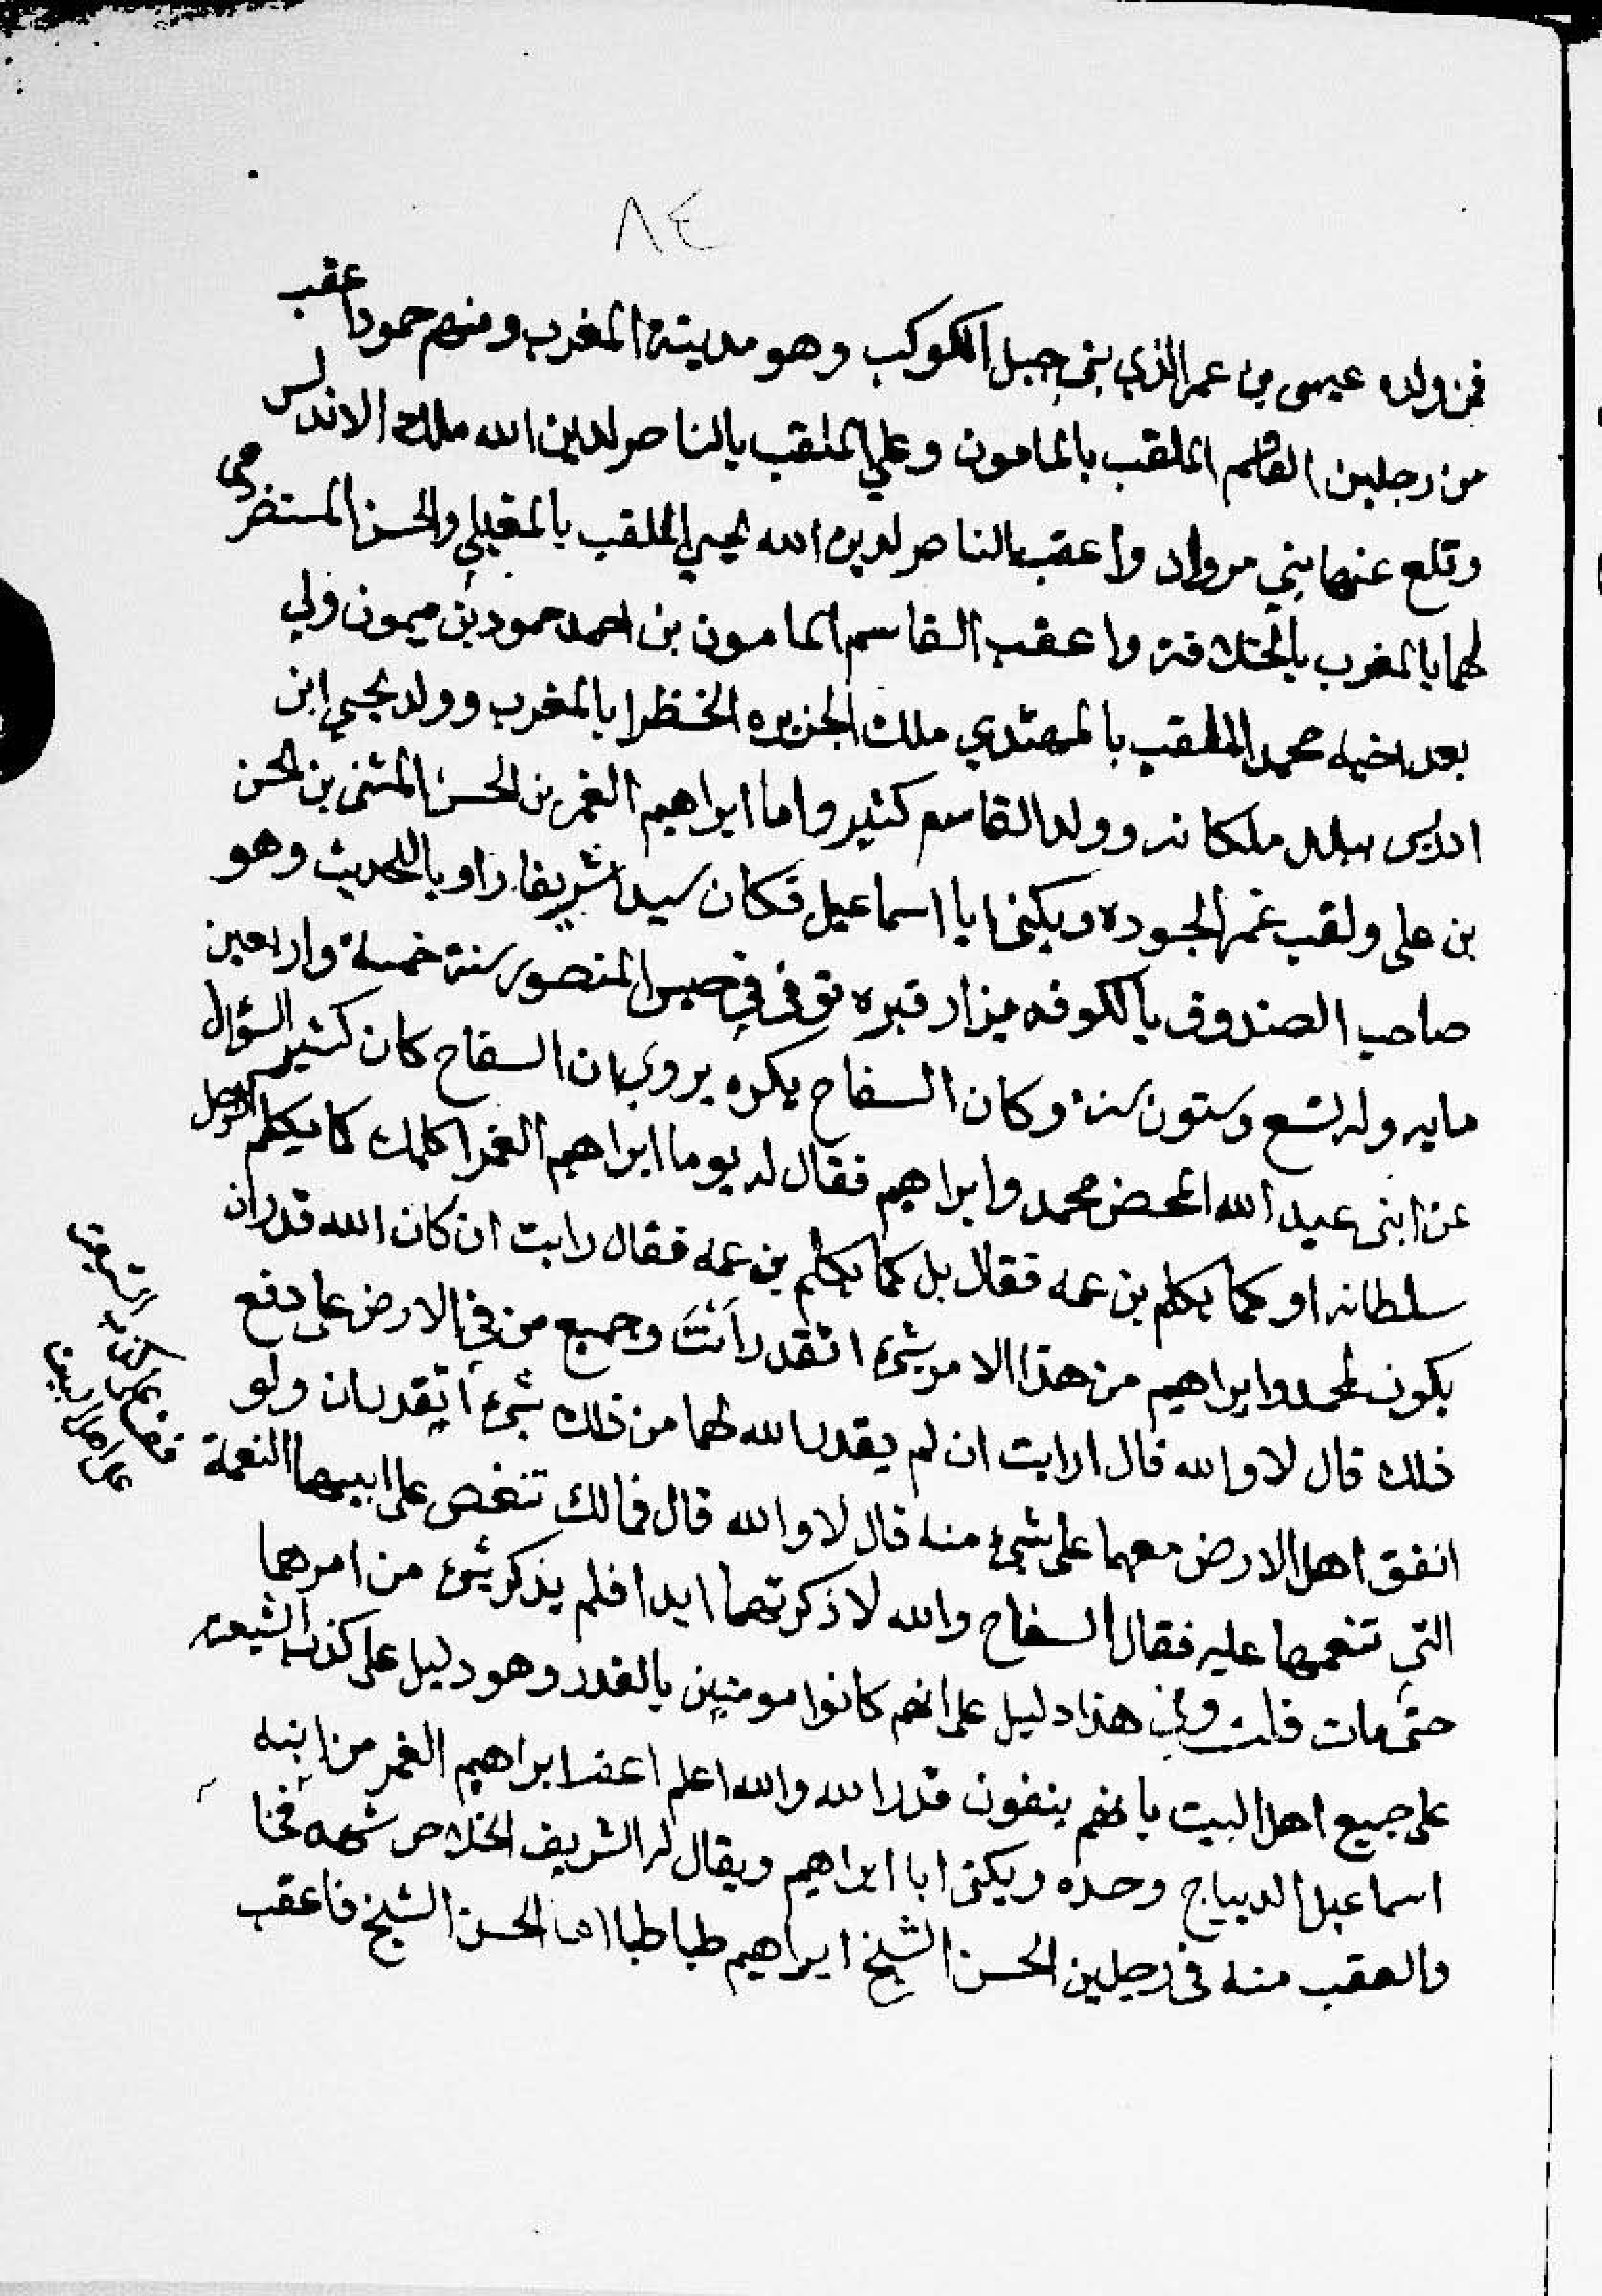 ٨٤
فمن ولده عيسى بن عمر الذي بنى جبل الكوكب وهو مدينة المغرب ومنهم حمود اعقب
من رجلين القاسم الملقب بالمامون وعلي الملقب بالناصر لدين الله ملك الاندلس
وقلع عنها بني مروان واعقب الناصر لدين الله يحيى الملقب بالمعتلي والحسن المستنصر
لهما بالمغرب بالخلافة واعقب القاسم المامون بن احمد حمود بن ميمون ولي
بعد اخيه محمد الملقب بالمهتدي ملك الجزيره الخظرا بالمغرب وولد يحيى ابن
ادريس ببلد ملكانه وولد القاسم كثير واما ابراهيم الغمر بن الحسن المثنى بن الحسن
بن على ولقب غمر الجوده ويكنى ابا اسماعيل فكان سيدا شريفا راويا للحديث وهو
صاحب الصندوق بالكوفه يزار قبره توفى في حبس المنصور سنة خمسة واربعين
مايه وله تسع وستون سنة وكان السفاح يكره يروى بان السفاح كان كثير السؤال
عن ابنى عبد الله المحض محمد وابراهيم فقال له يوما ابراهيم الغمر اكلمك كما يكلم الرجل
سلطانه او كما يكلم بن عمه فقال بل كما يكلم بن عمه فقال رايت ان كان الله قدر ان
يكون لمحمد وابراهيم من هذا الامر شيئ اتقدر أنتَ وجميع من في الارض على دفع
ذلك قال لا والله قال ارايت ان لم يقدر الله لهما من ذلك شيئ أيقدران ولو
اتفق اهل الارض معهما على شيئ منه قال لا والله قال فمالك تنغص على ابيهما النعمة
التي تنعمها عليه فقال السفاح والله لا ذكرتهما ابدا فلم يذكر شيئ من امرهما
حتى مات قلت وفي هذا دليل على انهم كانوا مومنين بالقدر وهو دليل على كذب الشيعة
على جميع اهل البيت بانهم ينفون قدر الله والله اعلم اعقب ابراهيم الغمر من ابنه
اسماعيل الديباج وحده ويكنى ابا ابراهيم ويقال له الشريف الخلاص شهد فخا
والعقب منه في رجلين الحسن الشيخ ابراهيم طباطبا اما الحسن الشيخ فاعقب